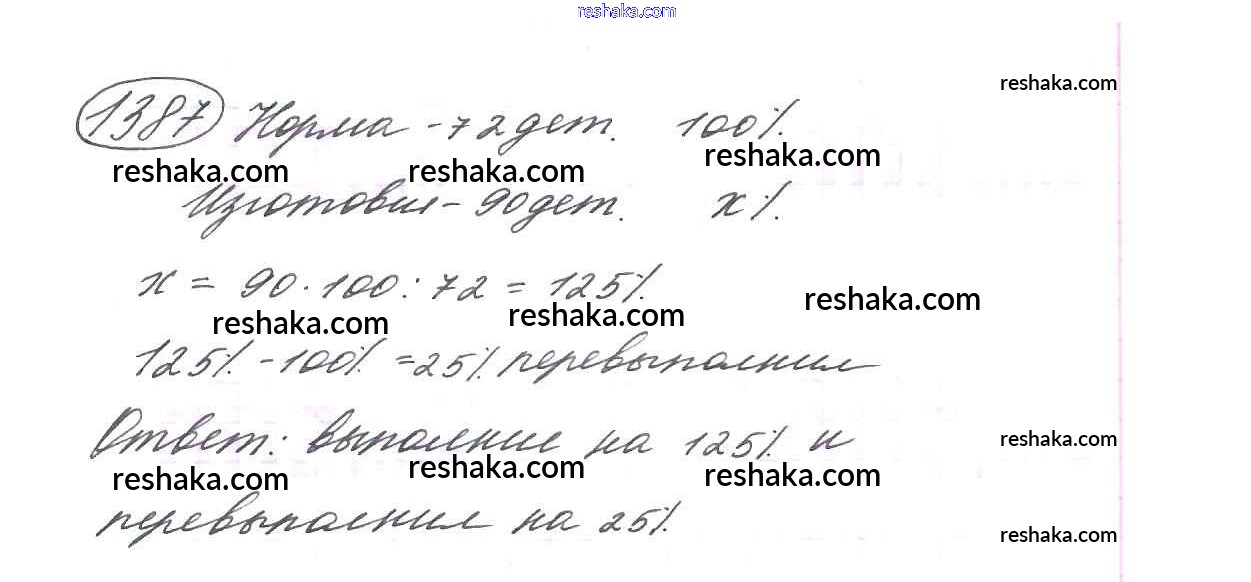 reshaka.com
reshaka.com
1387 Норма - 72 дет. 100%.
reshaka.com reshaka.com reshaka.com
Изготовил - 90 дет. x%.
x = 90 · 100 : 72 = 125%.
reshaka.com reshaka.com reshaka.com
125% - 100% = 25% перевыполнил
Ответ: выполнил на 125% и
reshaka.com
reshaka.com reshaka.com reshaka.com
перевыполнил на 25%.
reshaka.com